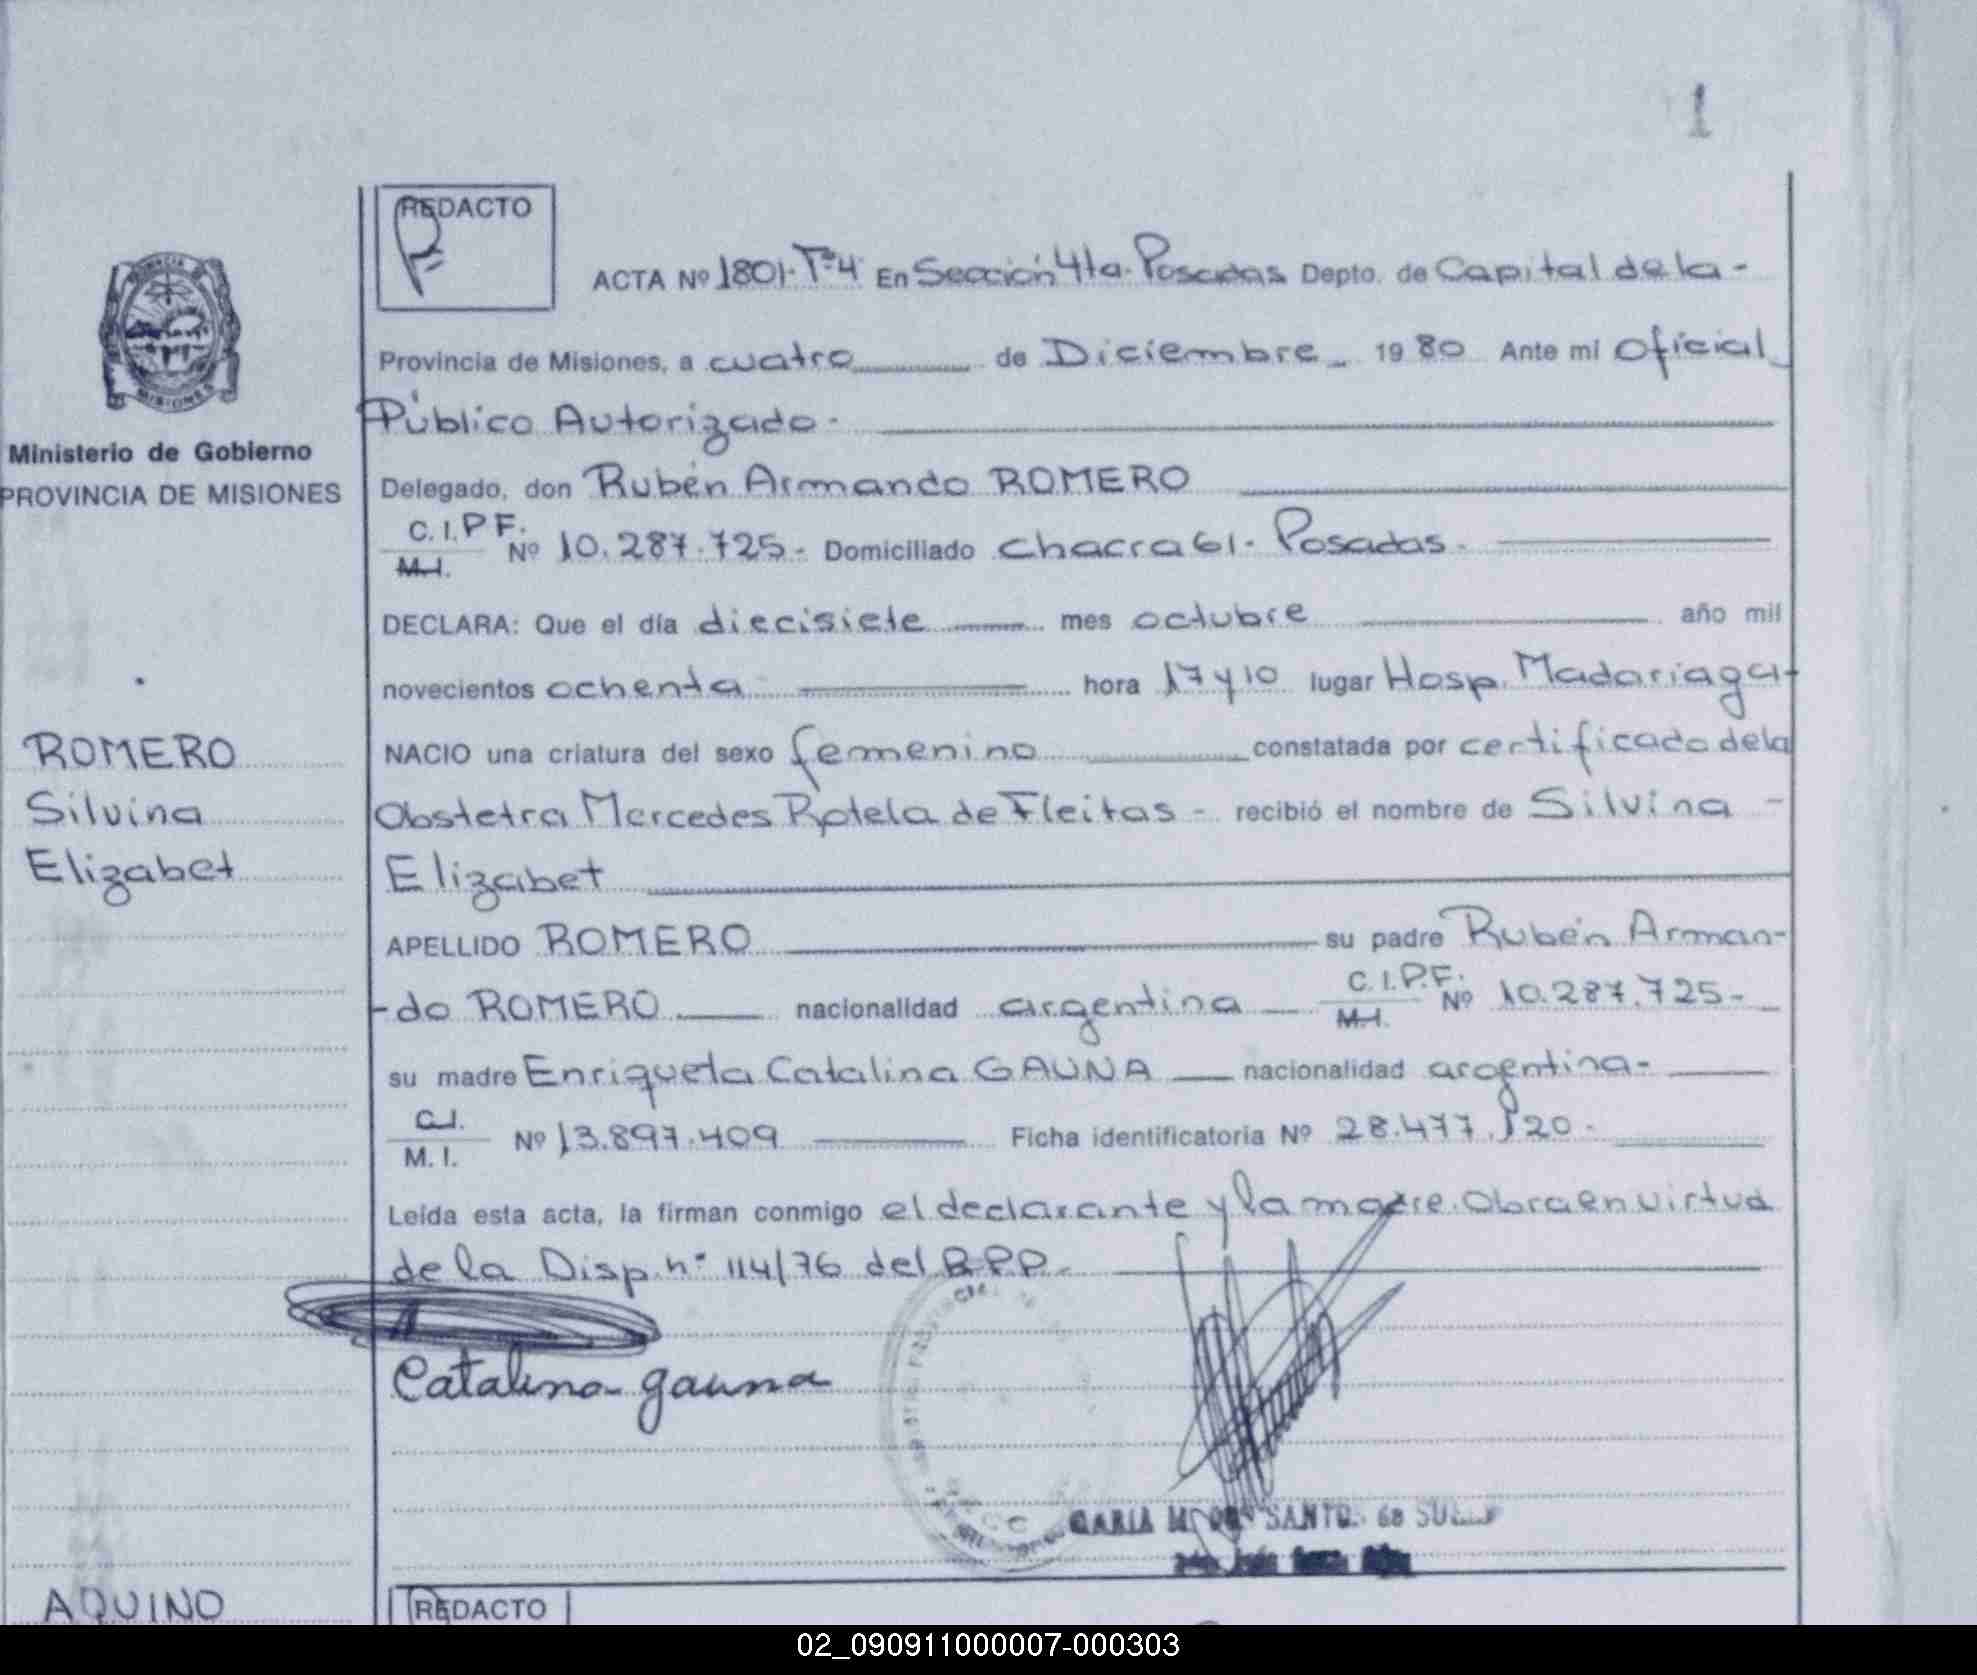 1
REDACTO
ACTA Nº 1801-Tº4 En Sección 4ta. Posadas Depto. de Capital de la -
Provincia de Misiones, a cuatro de Diciembre 1980 Ante mi Oficial
Público Autorizado -
Ministerio de Gobierno
PROVINCIA DE MISIONES
Delegado, don Rubén Armando ROMERO
C.I.P.F.
M.I. Nº 10.287.725 - Domiciliado Chacra 61 - Posadas -
DECLARA: Que el día diecisiete mes octubre año mil
novecientos ochenta hora 17 y 10 lugar Hosp. Madariaga -
ROMERO
Silvina
Elizabet
NACIO una criatura del sexo femenino constatada por certificado de la
Obstetra Mercedes Rotela de Fleitas - recibió el nombre de Silvina -
Elizabet
APELLIDO ROMERO su padre Rubén Arman-
-do ROMERO nacionalidad argentina C.I.P.F.
M.I. Nº 10.287.725 -
su madre Enriqueta Catalina GAUNA nacionalidad argentina -
C.I.
M.I. Nº 13.897.409 Ficha identificatoria Nº 28.477.120 -
Leída esta acta, la firman conmigo el declarante y la madre. Obra en virtud
de la Disp. nº 114/76 del R.P.P. -
Catalina gauna
AQUINO
REDACTO
02_090911000007-000303